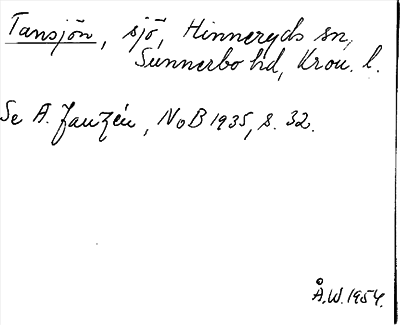 Tansjön, sjö, Hinneryds sn,
Sunnerbo hd, Kron. l.
Se A. Janzén, NoB 1935, s. 32.
Å.W. 1954.